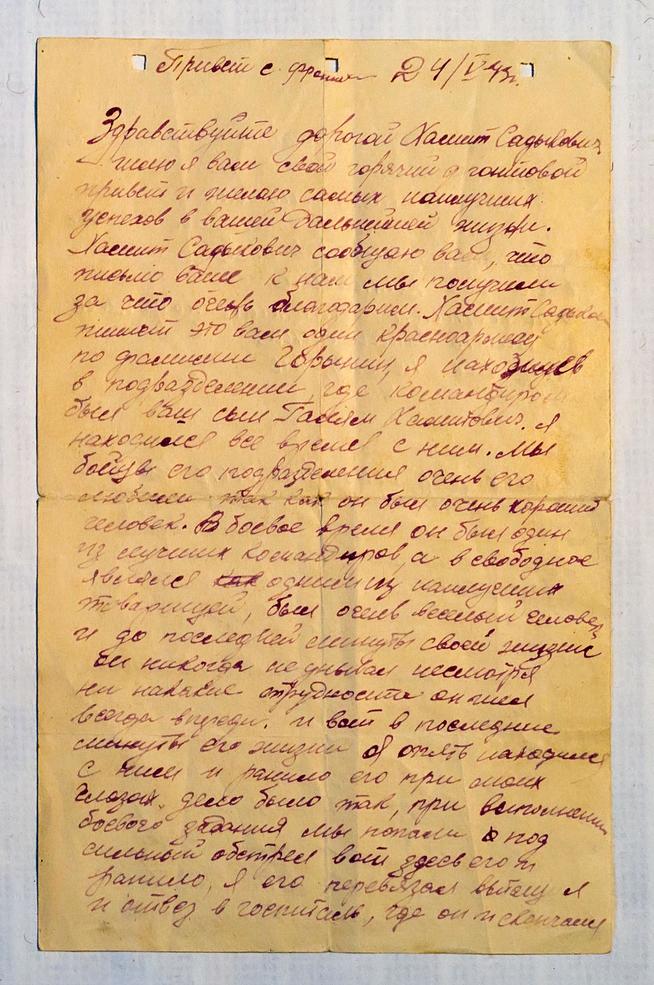 Привет с фронта 24/V-43г.
Здравствуйте дорогой Хамит Садыкович
шлю я вам свой горячий фронтовой
привет и желаю самых наилучших
успехов в вашей дальнейшей жизни.
Хамит Садыкович сообщаю вам, что
письмо ваше к нам мы получили
за что очень благодарим. Хамит Садыкович
пишет это вам один красноармеец
по фамилии я находился
в подразделении, где командиром
был ваш сын Хамитович. Я
находился все время с ним. Мы
бойцы его подразделения очень его
любили так как он был очень хороший
человек. В боевое время он был один
из лучших командиров, а в свободное
являлся одним из наилучших
товарищей, был очень веселый человек
и до последней минуты своей жизни
он никогда не унывал несмотря
ни на какие трудности он шел
всегда впереди. И вот в последние
минуты его жизни я опять находился
с ним и ранило его при моих
глазах. дело было так, при выполнении
боевого задания мы попали под
сильный обстрел вот здесь его и
ранило, я его перевязал вытащил
и отвез в госпиталь, где он и скончался